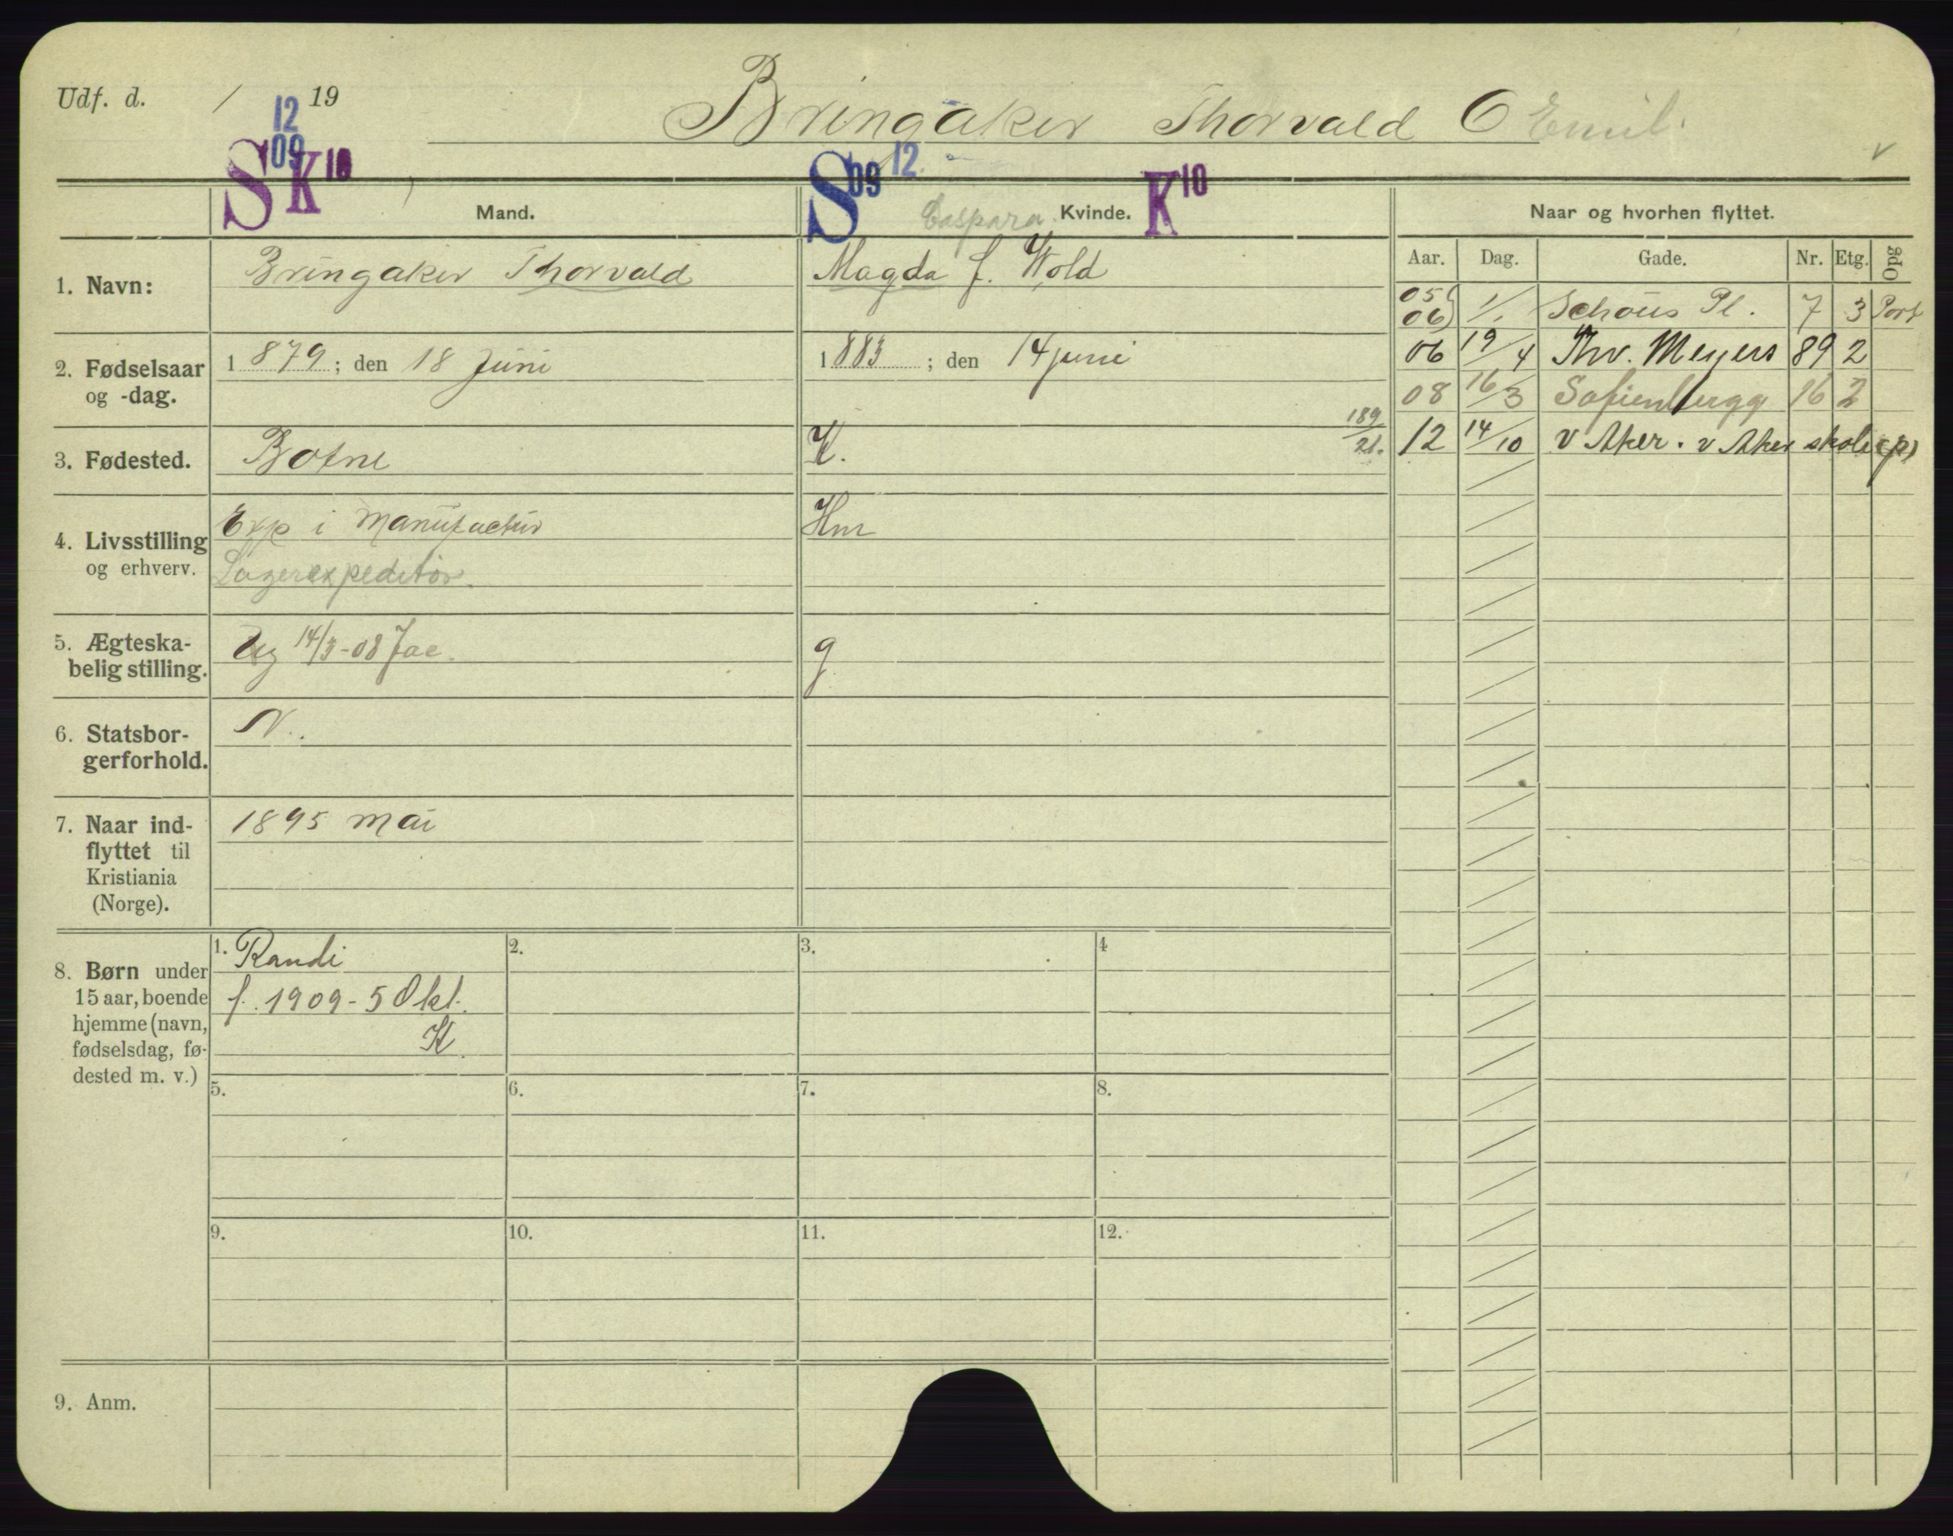 Udf. d. / 19
Bringaker Thorvald O Emil.
12 09 S K 10
S 09 12. K 10
v
Mand.
Caspara Kvinde.
Naar og hvorhen flyttet.
Aar. Dag. Gade. Nr. Etg. Opg
1. Navn: Bringaker Thorvald
Magda f. Wold
2. Fødselsaar og -dag. 1879; den 18 Juni
1883; den 14 juni
3. Fødested. Botne
K. 189/21.
4. Livsstilling og erhverv. Exp i Manufactur
Lagerexpeditør.
Hm
5. Ægteska-
belig stilling. Ug 14/3-08 Jac.
g
6. Statsbor-
gerforhold. N.
7. Naar ind-
flyttet til
Kristiania
(Norge). 1895 mai
8. Børn under
15 aar, boende
hjemme (navn,
fødselsdag, fø-
dested m. v.)
1. Randi
f. 1909-5 Okt.
K
2.
3.
4
5.
6.
7.
8.
9.
10.
11.
12.
9. Anm.
05 06 1/1 Schous Pl. 7 3 Port
06 19/4 Thv. Meyers 89 2
08 16/3 Sofienbergg 16 2
12 14/10 V Aker. v Aker skole (p)